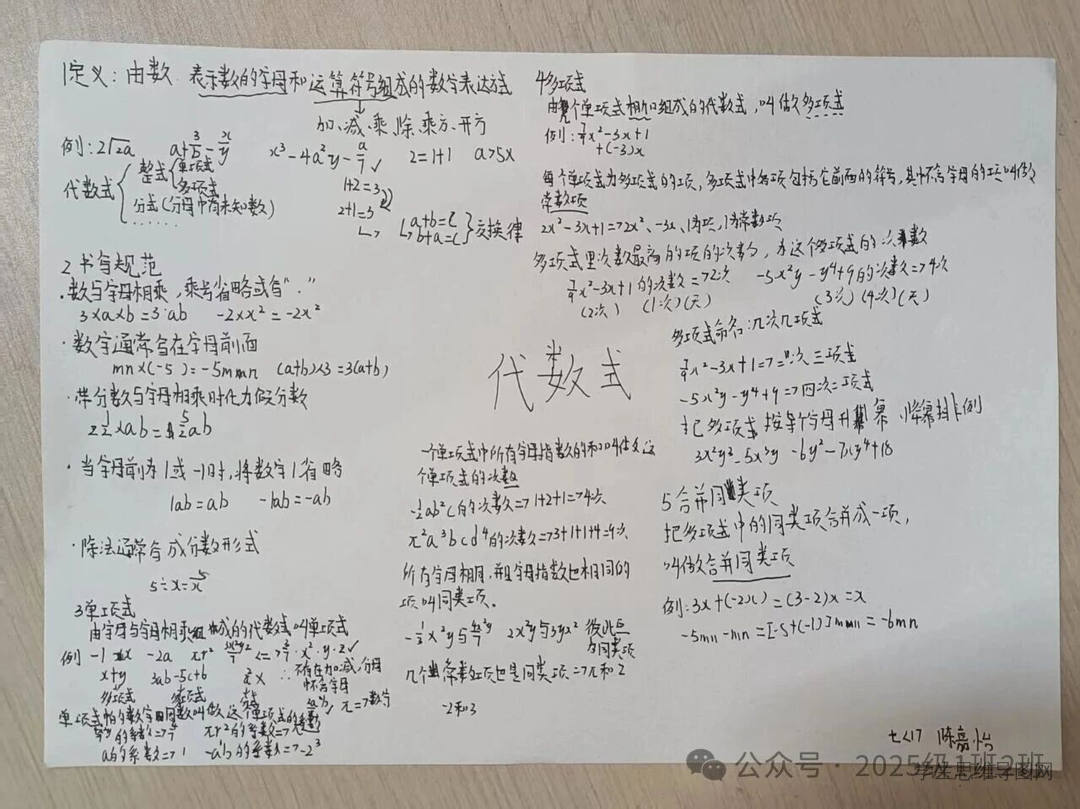 1定义：由数 表示数的字母和运算符号组成的数学表达式
加、减、乘、除、乘方、开方
例：2√2a a+3/b-x/y x³-4a²y-a/7✓ 2=1+1 a>5x
代数式
整式
单项式
多项式
分式(分母中有未知数)
......
1+2=3
2+1=3
a+b=c
b+a=c
交换律
2 书写规范
·数与字母相乘，乘号省略或写"."
3×a×b=3·ab -2×x²=-2x²
·数字通常写在字母前面
mn×(-5)=-5mn (a+b)×3=3(a+b)
·带分数与字母相乘时化为假分数
2½×ab=5/2ab
·当字母前为1或-1时，将数字1省略
1ab=ab -1ab=-ab
·除法通常写成分数形式
5÷x=5/x
3单项式
由字母与字母相乘组成的代数式叫单项式
例 -1 x -2a πr²
x+y 3ab-5c+b
多项式 多项式
不存在加、减，分母
不含字母
π=>数字
单项式中的数字因数叫做这个单项式的系数
πr²的系数=>π
a的系数=>1
代数式
一个单项式中所有字母指数的和叫做这
个单项式的次数
-½ab²c的次数=>1+2+1=>4次
π²a³bcd⁴的次数=>3+1+1+4=9次
所有字母相同，并且字母指数也相同的
项叫同类项。
2x²y与3yx² 彼此互
为同类项
几个常数项也是同类项=>π和2
-2和3
4多项式
由几个单项式相加组成的代数式，叫做多项式
例：7/4x²-3x+1
+(-3)x
每个单项式为多项式的项，多项式中各项包括它前面的符号，其中不含字母的项叫做
常数项
2x²-3x+1=>2x²、-3x、1为项，1为常数项
多项式里次数最高的项的次数，为这个多项式的次数
7/4x²-3x+1的次数=>2次 -5x²y-y⁴+9的次数=>4次
(2次) (1次)(无) (3次)(4次)(无)
多项式命名：几次几项式
7/4x²-3x+1=>二次三项式
-5x²y-y⁴+9=>四次三项式
把多项式按某个字母升幂、降幂排列
5合并同类项
把多项式中的同类项合并成一项，
叫做合并同类项
例：3x+(-2x)=(3-2)x=x
-5mn-mn=[-5+(-1)]mn=-6mn
七(17 陈嘉怡
公众号·2025级1班2班
学生思维导图网